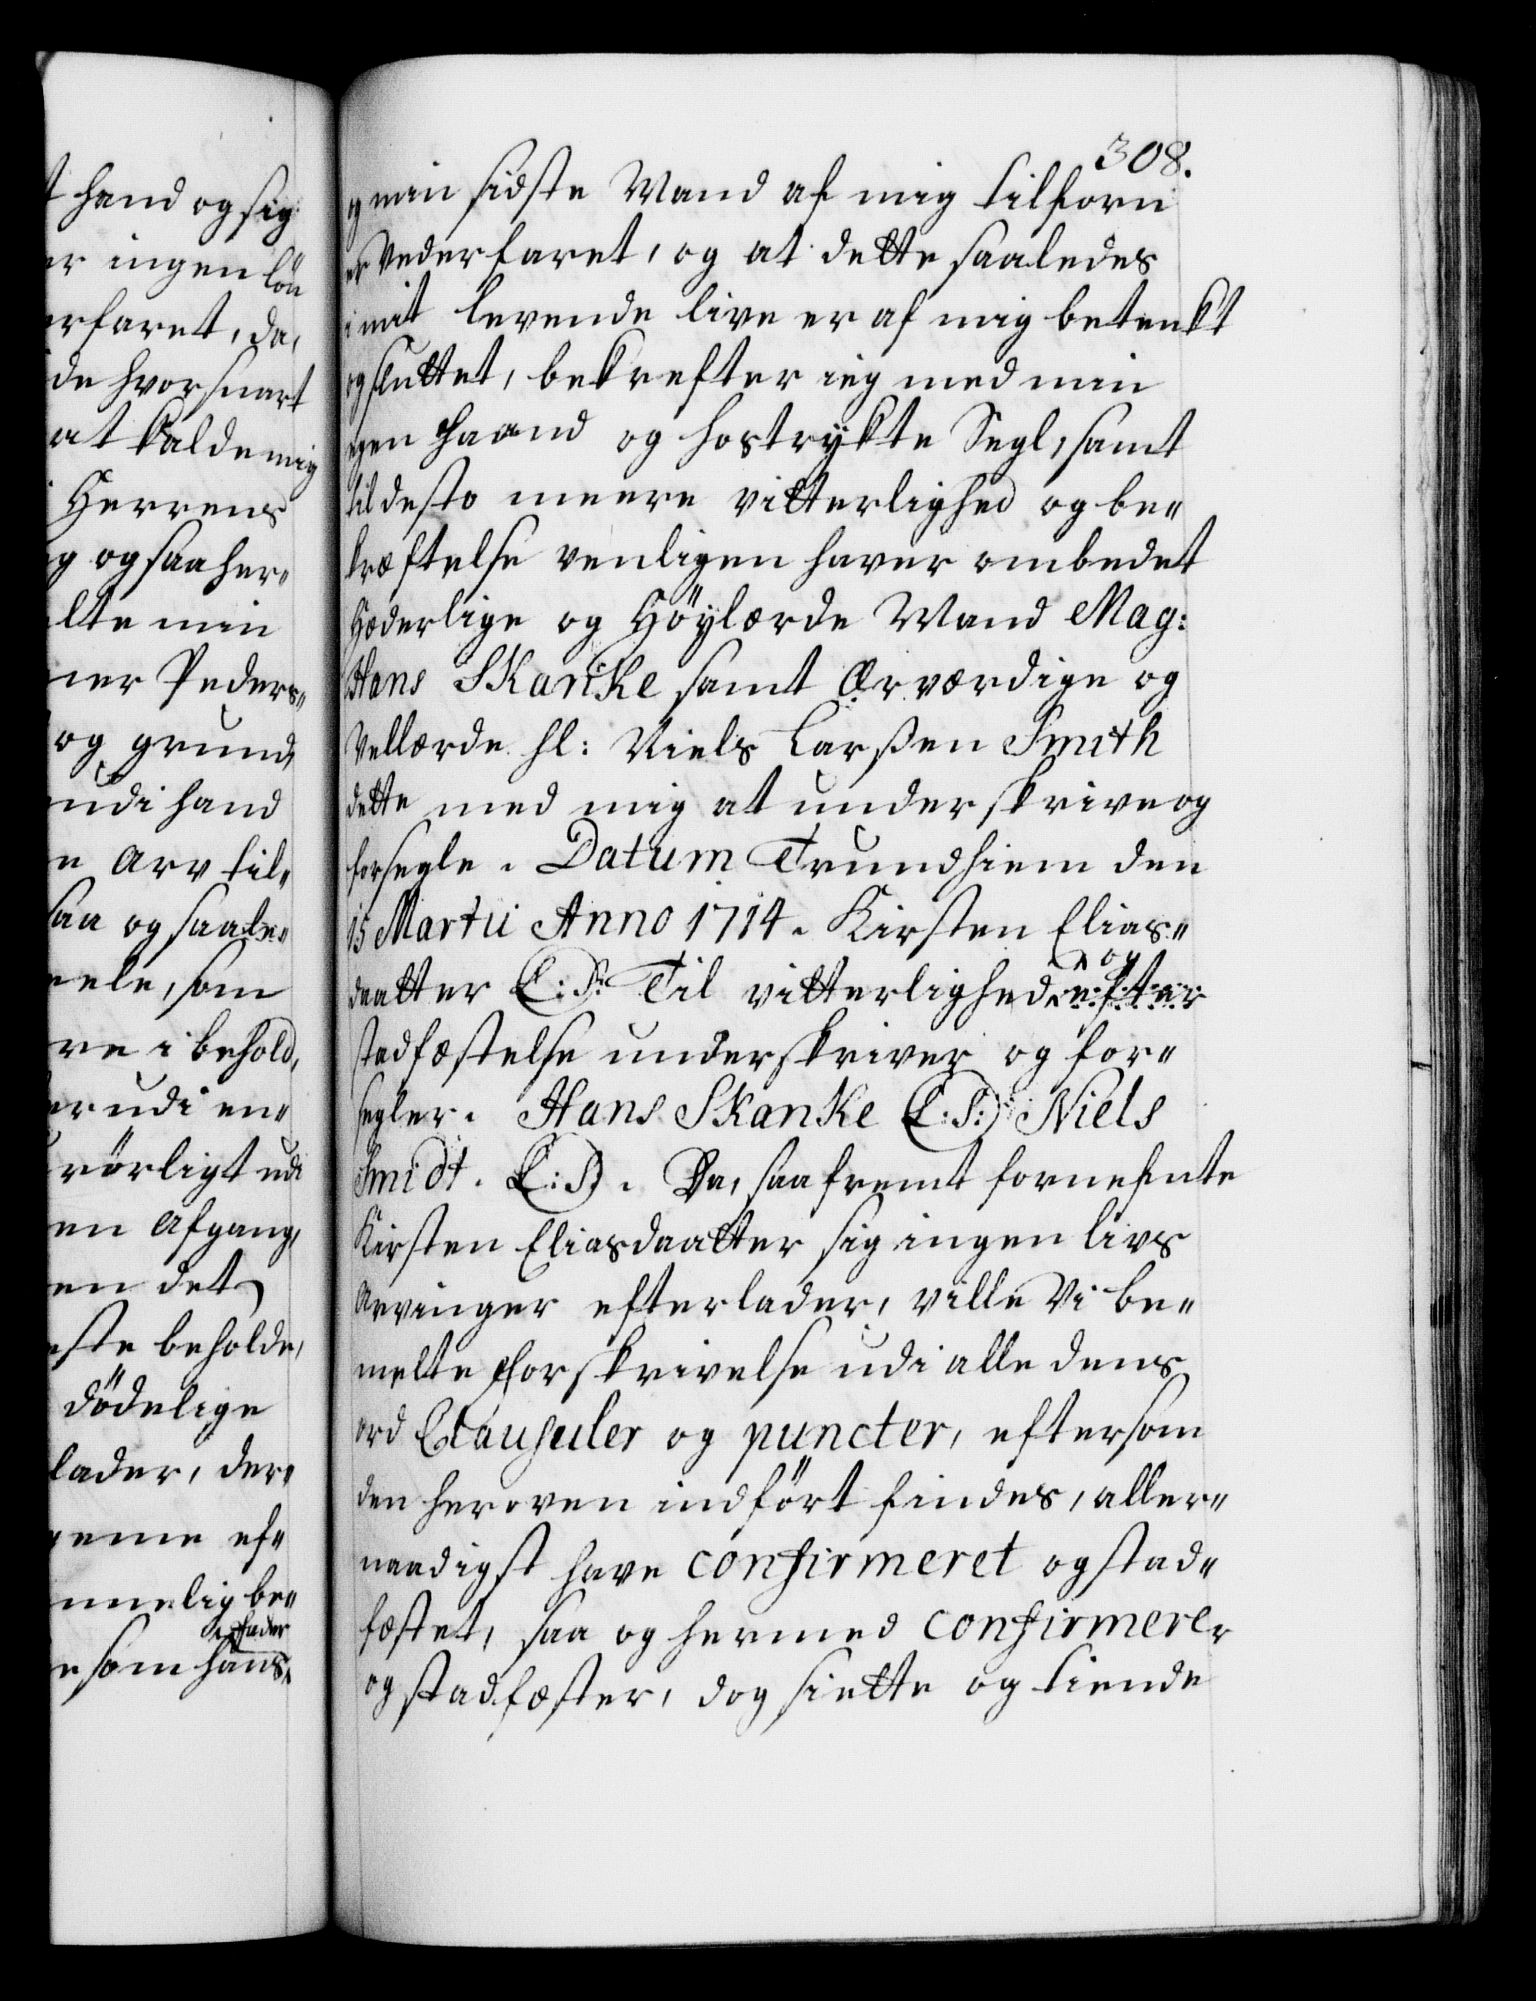 t hand og sig
er ingen lön
erfaret, da,
de hvor snart
at kalde mig
Herrens
g og saa her„
lte min
ner Peders„
og grund,
udi hand
n Arv til„
saa og saale„
eele, som
re i behold,
er udi en„
rörligt udi
en Afgang,
en det
este beholde,
dödelige
lader, der„
eme ef„
mmelig be„
fader
e som hans
308.
g min sidste Mand af mig tilforn
er Vederfaret, og at dette saaledes
i mit levende live er af mig betenkt
og sluttet, bekrefter ieg med min
egen Haand og hostrykte Segl, samt
til desto meere vitterlighed og be„
kræftelse venligen haver ombedet
Hæderlige og Höylærde Mand Mag:
Hans Skanke samt Ærværdige og
Vellærde hl: Niels Larßen Smith
dette med mig at underskrive og
forsegle. Datum Trundhiem den
15 Martii Anno 1714. Kirsten Elias„
daatter (L:S: Til vitterlighed efter
og
stadfæstelse underskriver og for„
segler. Hans Skanke (L:S:) Niels
Smidt. (L:S). Da, saafremt fornefnte
Kirsten Eliasdaatter sig ingen livs
Arvinger efterlader, ville Vi be„
melte Forskrivelse udi alle dens
ord Clausuler og puncter, eftersom
den heroven indfört findes, aller„
naadigst have confirmeret og stad„
fæstet, saa og hermed confirmerer
og stadfæster, dog siette og tiende